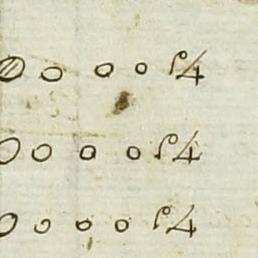 0 0 0 0 54
0 0 0 0 54
0 0 0 0 54